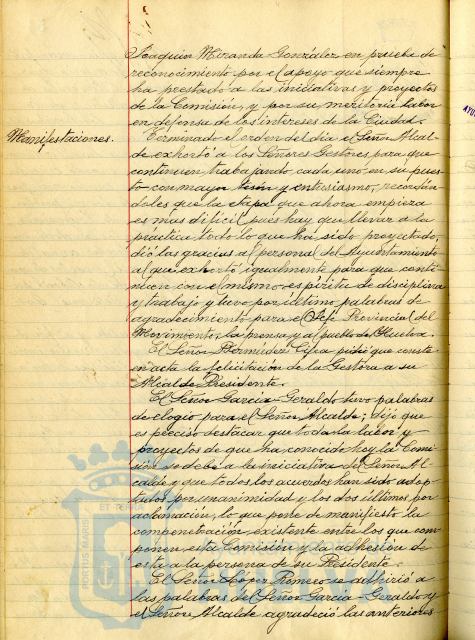 Joaquin Miranda Gonzalez en prueba de
reconocimiento por el apoyo que siempre
ha prestado a las iniciativas y proyectos
de la Comisión, y por su meritoria labor
en defensa de los intereses de la Ciudad.
Manifestaciones.
Terminado el orden del dia el Señor Alcal-
de exhortó a los Señores Gestores para que
continuen trabajando cada uno en su pues-
to con mayor tesón y entusiasmo, recordan-
doles que la etapa que ahora empieza
es mas dificil pues hay que llevar a la
práctica todo lo que ha sido proyectado,
dió las gracias al personal del Ayuntamiento
al que exhortó igualmente para que conti-
nuen con el mismo espiritu de disciplina
y trabajo y tuvo por último palabras de
agradecimiento para el Jefe Provincial del
Movimiento, la prensa y al pueblo de Huelva.
El Señor Bermudez Cifra pidió que conste
en acta la felicitación de la Gestora a su
Alcalde Presidente.
El Señor Garcia-Geraldo tuvo palabras
de elogio para el Señor Alcalde; dijo que
es preciso destacar que toda la labor y
proyectos de que ha conocido hoy la Comi-
sión se debe a la iniciativa del Señor Al-
calde y que todos los acuerdos han sido adop-
tados por unanimidad y los dos últimos por
aclamación, lo que pone de manifiesto la
compenetración existente entre los que com-
ponen esta Comisión y la adhesión de
esta a la persona de su Presidente.
El Señor López Romero se adhirió a
las palabras del Señor Garcia-Geraldo y
el Señor Alcalde agradeció las anteriores
PORTUS MARIS
ET TERRAE